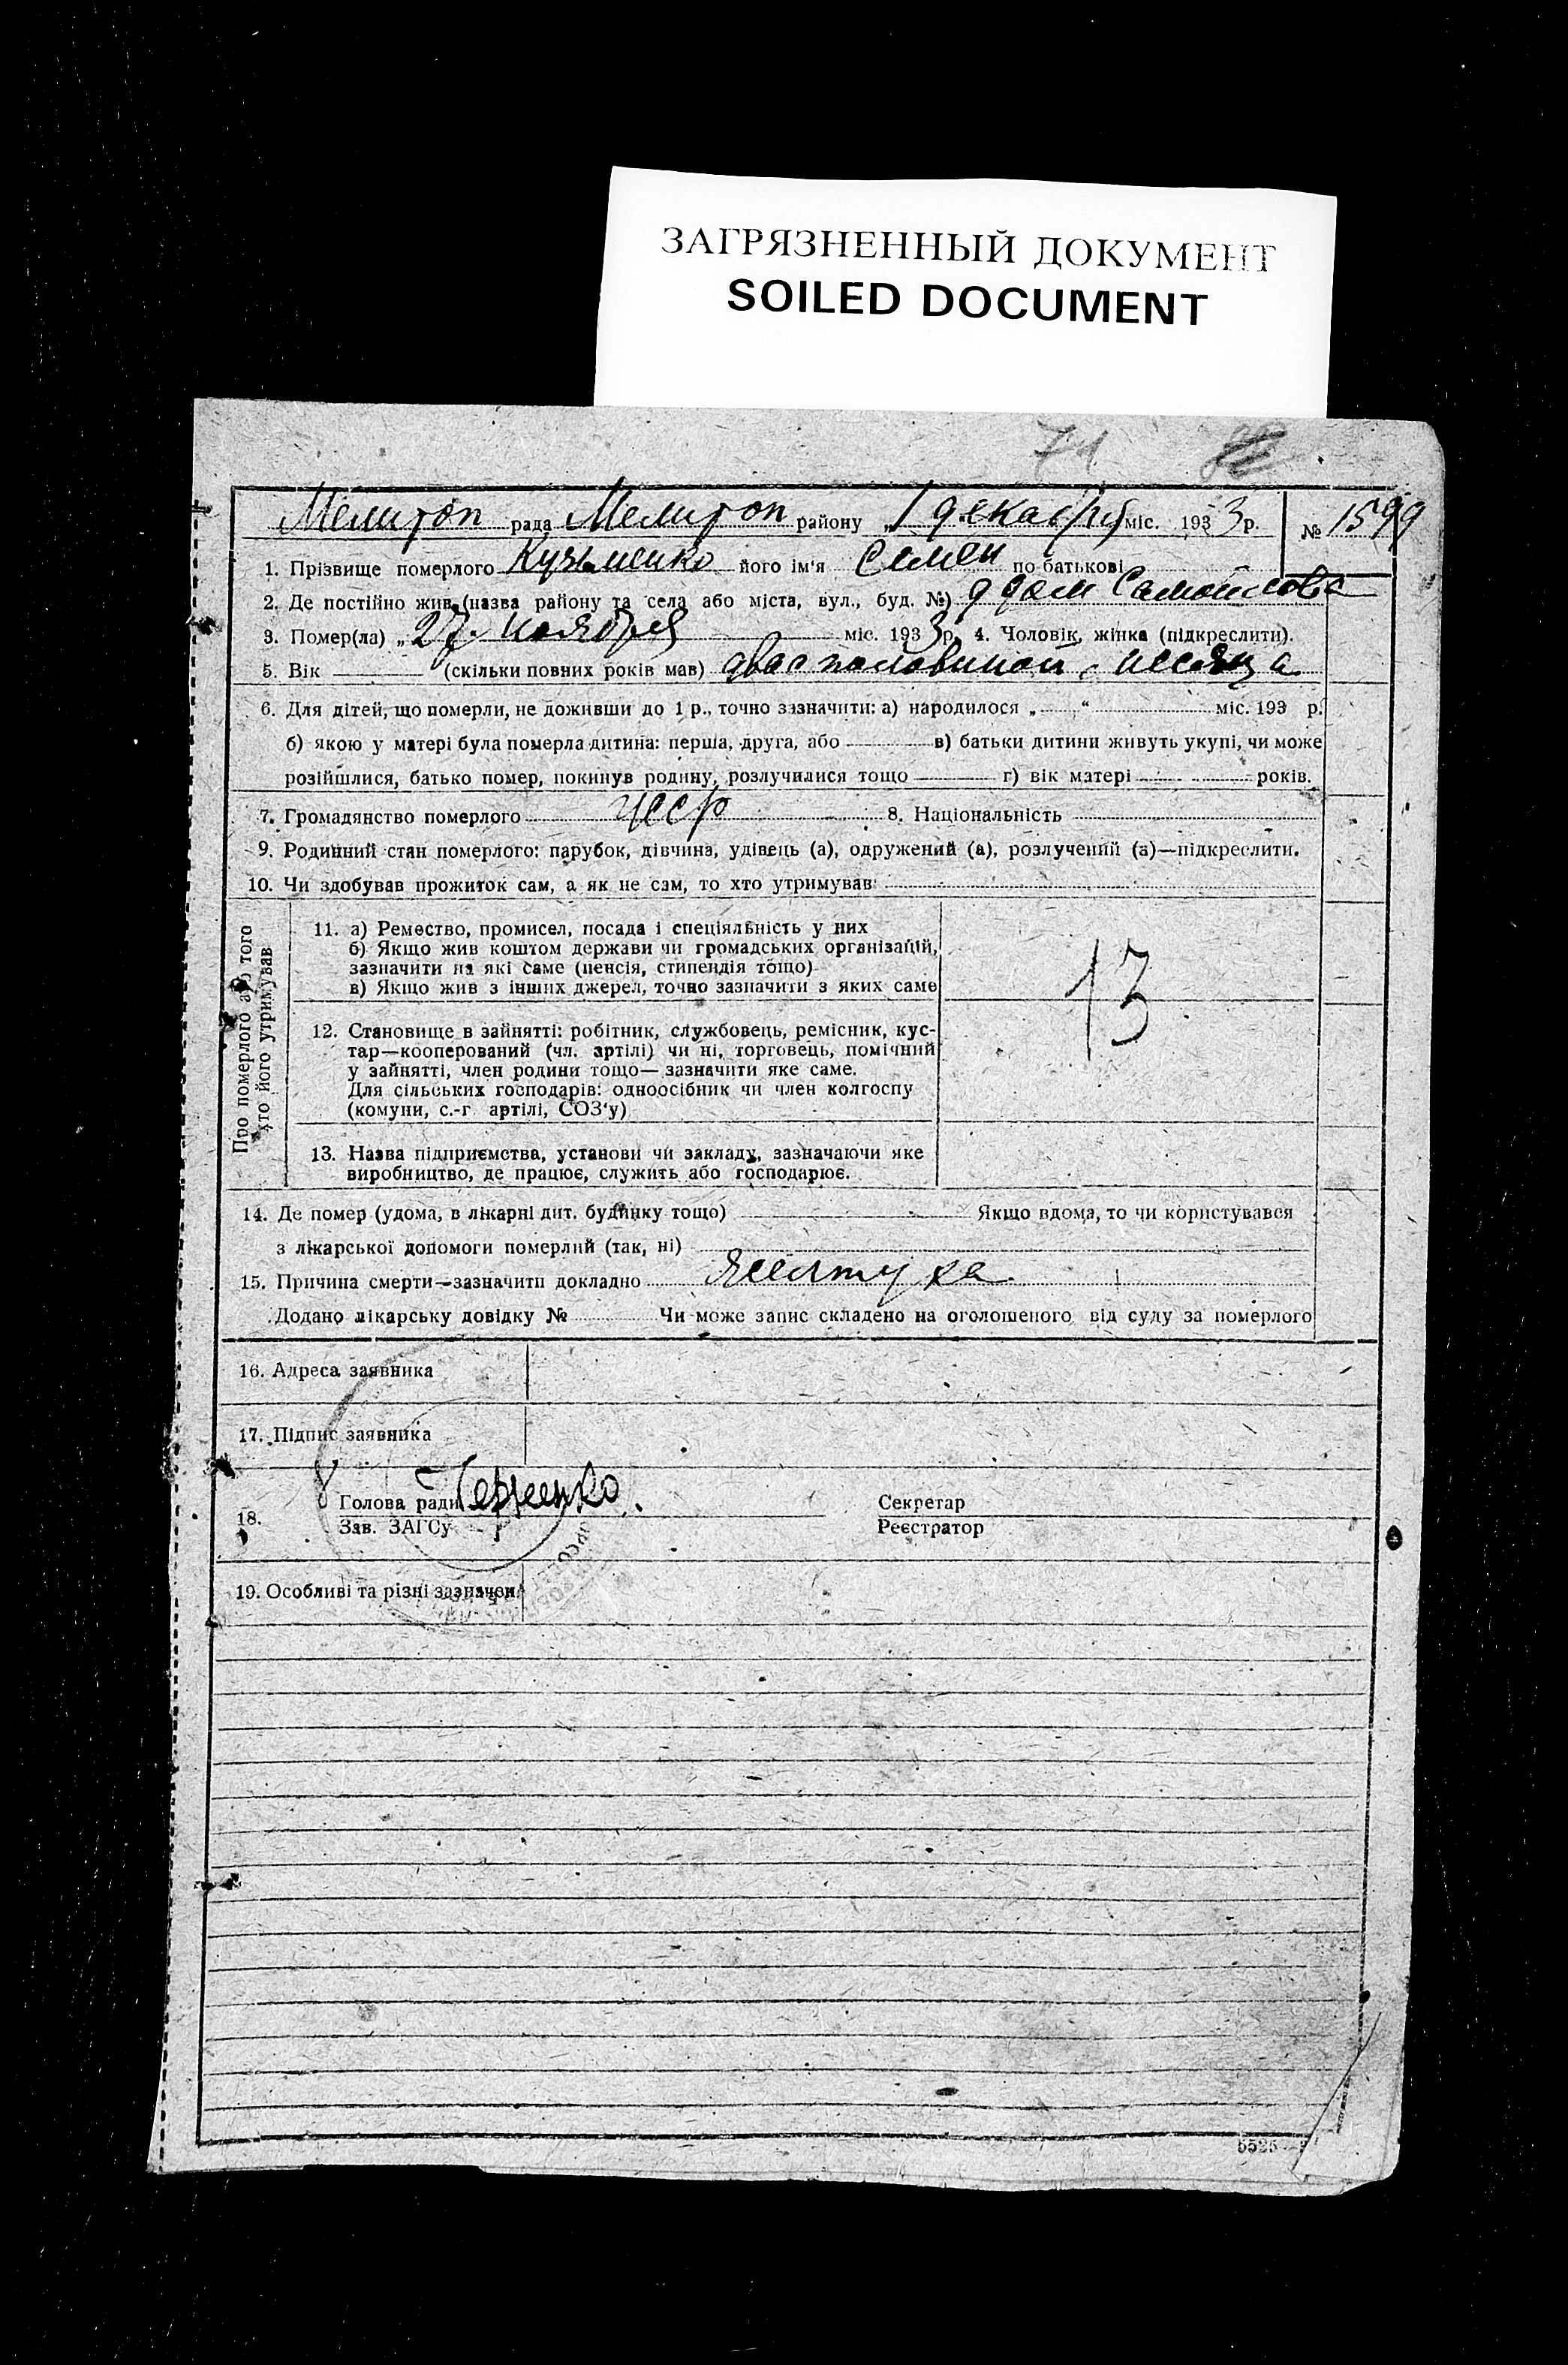 ЗАГРЯЗНЕННЫЙ ДОКУМЕНТ
SOILED DOCUMENT
71
Мелитоп рада Мелитоп району „1 декабря міс. 1933 р. № 1599
1. Прізвище померлого Кузьменко його ім'я Семен по батькові
2. Де постійно жив (назва району та села або міста, вул., буд. №) д дом Самойлова
3. Помер(ла) „27 ноября міс. 1933 р. 4. Чоловік, жінка (підкреслити).
5. Вік (скільки повних років мав) два с половиной месяца
6. Для дітей, що померли, не доживши до 1 р., точно зазначити: а) народилося „ “ міс. 193 р.
б) якою у матері була померла дитина: перша, друга, або в) батьки дитини живуть укупі, чи може
розійшлися, батько помер, покинув родину, розлучилися тощо г) вік матері років.
7. Громадянство померлого УССР 8. Національність
9. Родинний стан померлого: парубок, дівчина, удівець (а), одружений (а), розлучений (а)—підкреслити.
10. Чи здобував прожиток сам, а як не сам, то хто утримував
Про померлого або того
хто його утримував
11. а) Ремество, промисел, посада і спеціяльність у них
б) Якщо жив коштом держави чи громадських організацій,
зазначити на які саме (пенсія, стипендія тощо)
в) Якщо жив з інших джерел, точно зазначити з яких саме
13
12. Становище в зайнятті: робітник, службовець, ремісник, кус-
тар—кооперований (чл. артілі) чи ні, торговець, помічний
у зайнятті, член родини тощо— зазначити яке саме.
Для сільських господарів: одноосібник чи член колгоспу
(комуни, с.-г артілі, СОЗ'у)
13. Назва підприємства, установи чи закладу, зазначаючи яке
виробництво, де працює, служить або господарює.
14. Де помер (удома, в лікарні дит. будинку тощо) Якщо вдома, то чи користувався
з лікарської допомоги померлий (так, ні)
15. Причина смерти—зазначити докладно Желтуха
Додано лікарську довідку № Чи може запис складено на оголошеного від суду за померлого
16. Адреса заявника
17. Підпис заявника
18. Голова ради
Зав. ЗАГСу
Секретар
Реєстратор
19. Особливі та різні зазначен.
5525